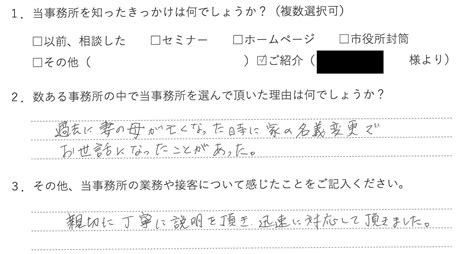 1．当事務所を知ったきっかけは何でしょうか？（複数選択可）
□以前、相談した　□セミナー　□ホームページ　□市役所封筒
□その他（　　　　　）☑ご紹介（　　　　　様より）
2．数ある事務所の中で当事務所を選んで頂いた理由は何でしょうか？
過去に妻の母が亡くなった時に家の名義変更で
お世話になったことがあった。
3．その他、当事務所の業務や接客について感じたことをご記入ください。
親切に丁寧に説明を頂き、迅速に対応して頂きました。